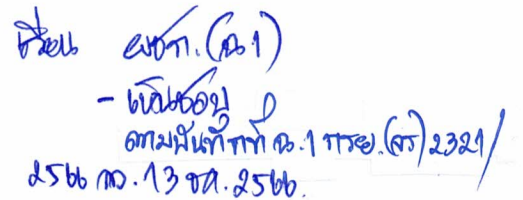 เรียน ผชก.(ฉ.1)
- เห็นชอบ
ตามบันทึกที่ ฉ.1 กรย.(จร) 2321/
2566 ลว. 13 ธค. 2566.